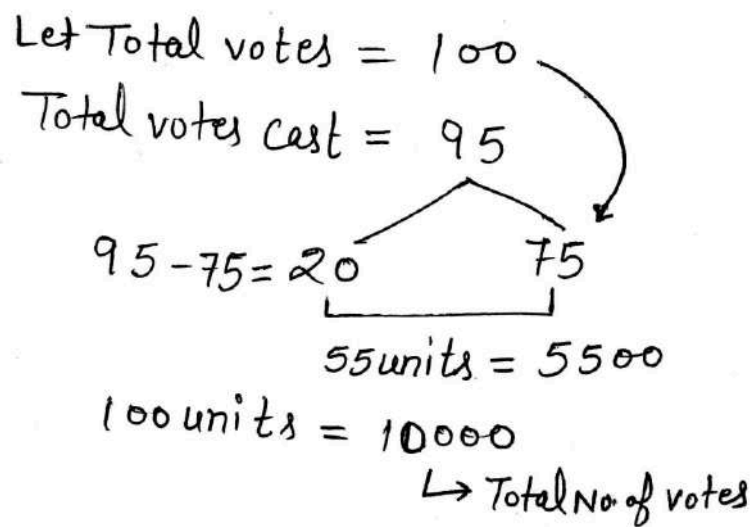 Let Total votes = 100
Total votes cast = 95
95-75=20 75
55units = 5500
100units = 10000
↳ Total No. of votes